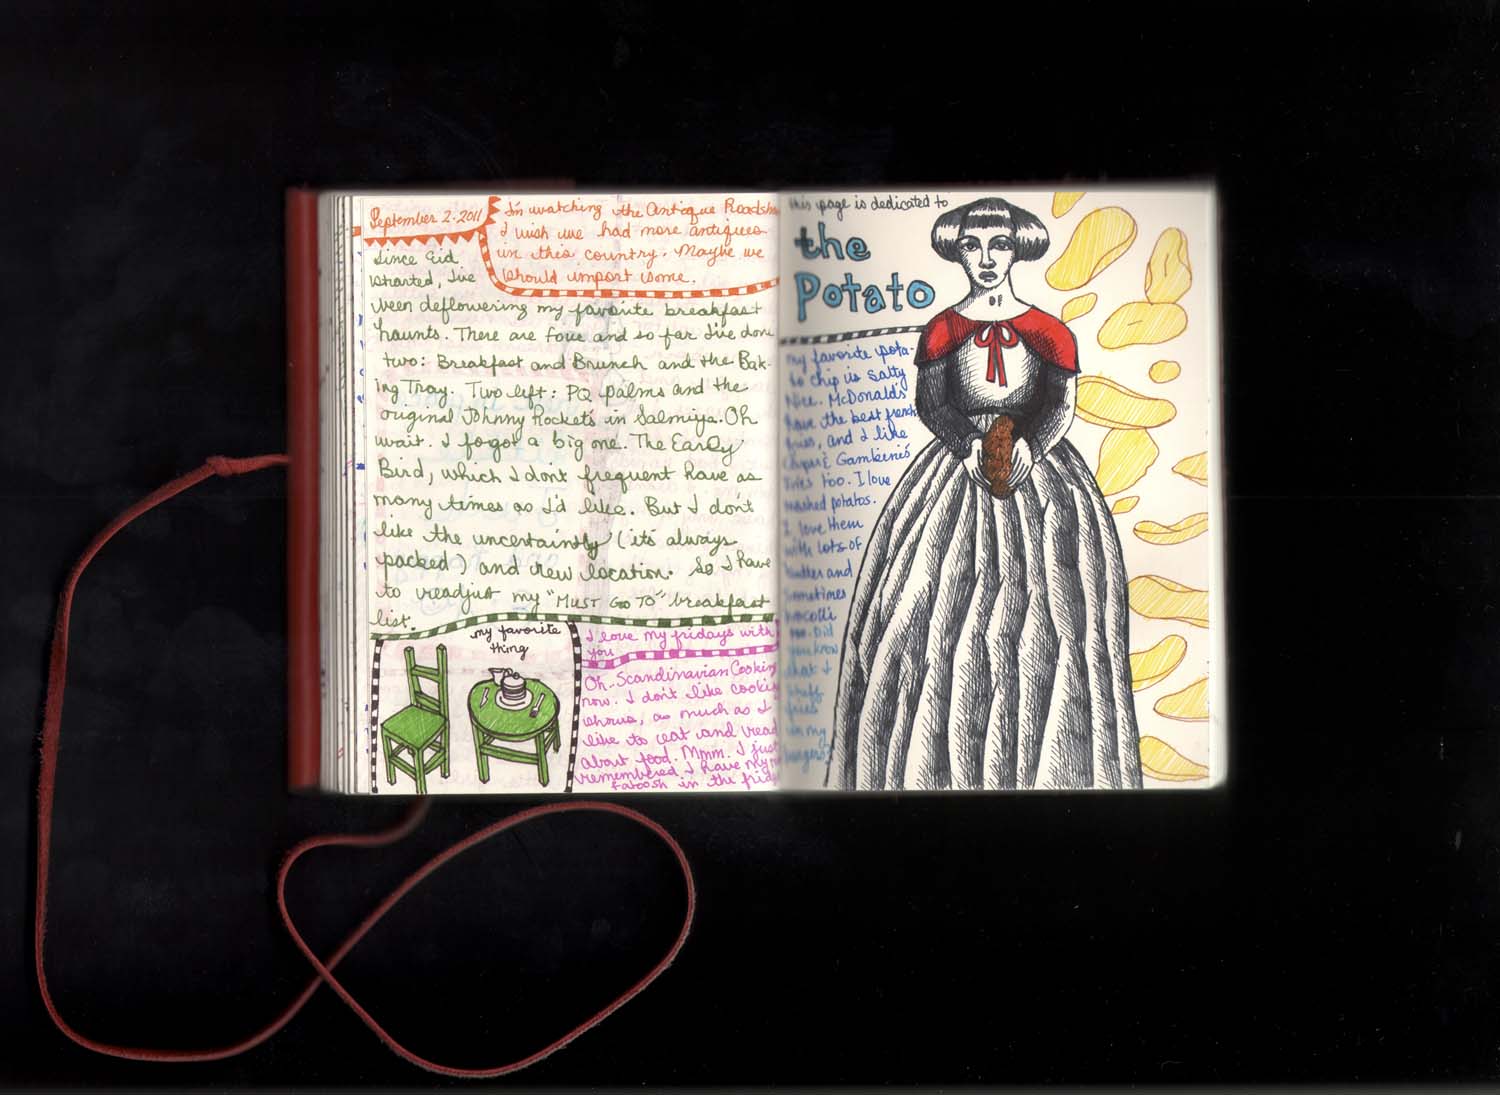 September 2. 2011
I'm watching the Antique Roadsh
I wish we had more antiques
in this country. Maybe we
should import some.
Since Eid
started, I've
been deflowering my favorite breakfast
haunts. There are four and so far I've done
two: Breakfast and Brunch and the Bak-
ing Tray. Two left: PQ Palms and the
original Johnny Rockets in Salmiya. Oh
wait. I forgot a big one. The Early
Bird, which I don't frequent have as
many times as I'd like. But I don't
like the uncertaintly (it's always
packed) and new location. So I have
to readjust my "MUST GO TO" breakfast
list.
my favorite
thing
I love my fridays with
you
Oh. Scandinavian Cookin
now. I don't like cookin
shows, as much as I
like to eat and read
about food. Mmm. I just
remembered I have my
fatoosh in the fridg
this page is dedicated to
the
Potato
my favorite pota-
to chip is Salty
Nice. McDonald's
have the best french
fries, and I like
Chips & Gambrini's
fries too. I love
mashed potatos.
I love them
with lots of
butter and
sometimes
brocolli
too. Did
you know
that I
stuff
fries
in my
burgers?